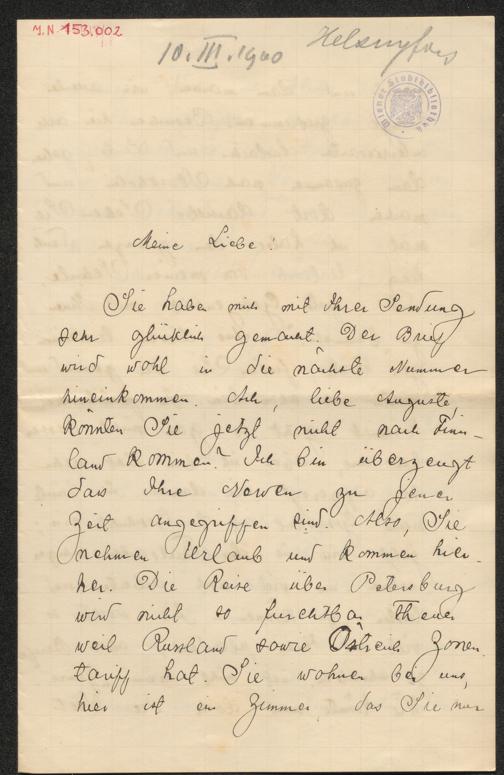 J.N. 153.002
10. III. 1900 Helsingfors
Wiener Stadtbibliothek
Meine Liebe!
Sie haben mich mit Ihrer Sendung
sehr glücklich gemacht. Der Brief
wird wohl in die nächste Nummer
hineinkommen. Ach, liebe Auguste,
könnten Sie jetzt nicht nach Finn-
land kommen? Ich bin überzeugt
dass Ihre Nerven zu jener
Zeit angegriffen sind. Also, Sie
nehmen Urlaub und kommen hier-
her. Die Reise über Petersburg
wird nicht so furchtbar theuer
weil Russland sowie Östreich Zonen
tariff hat. Sie wohnen bei uns,
hier ist ein Zimmer, das Sie nur